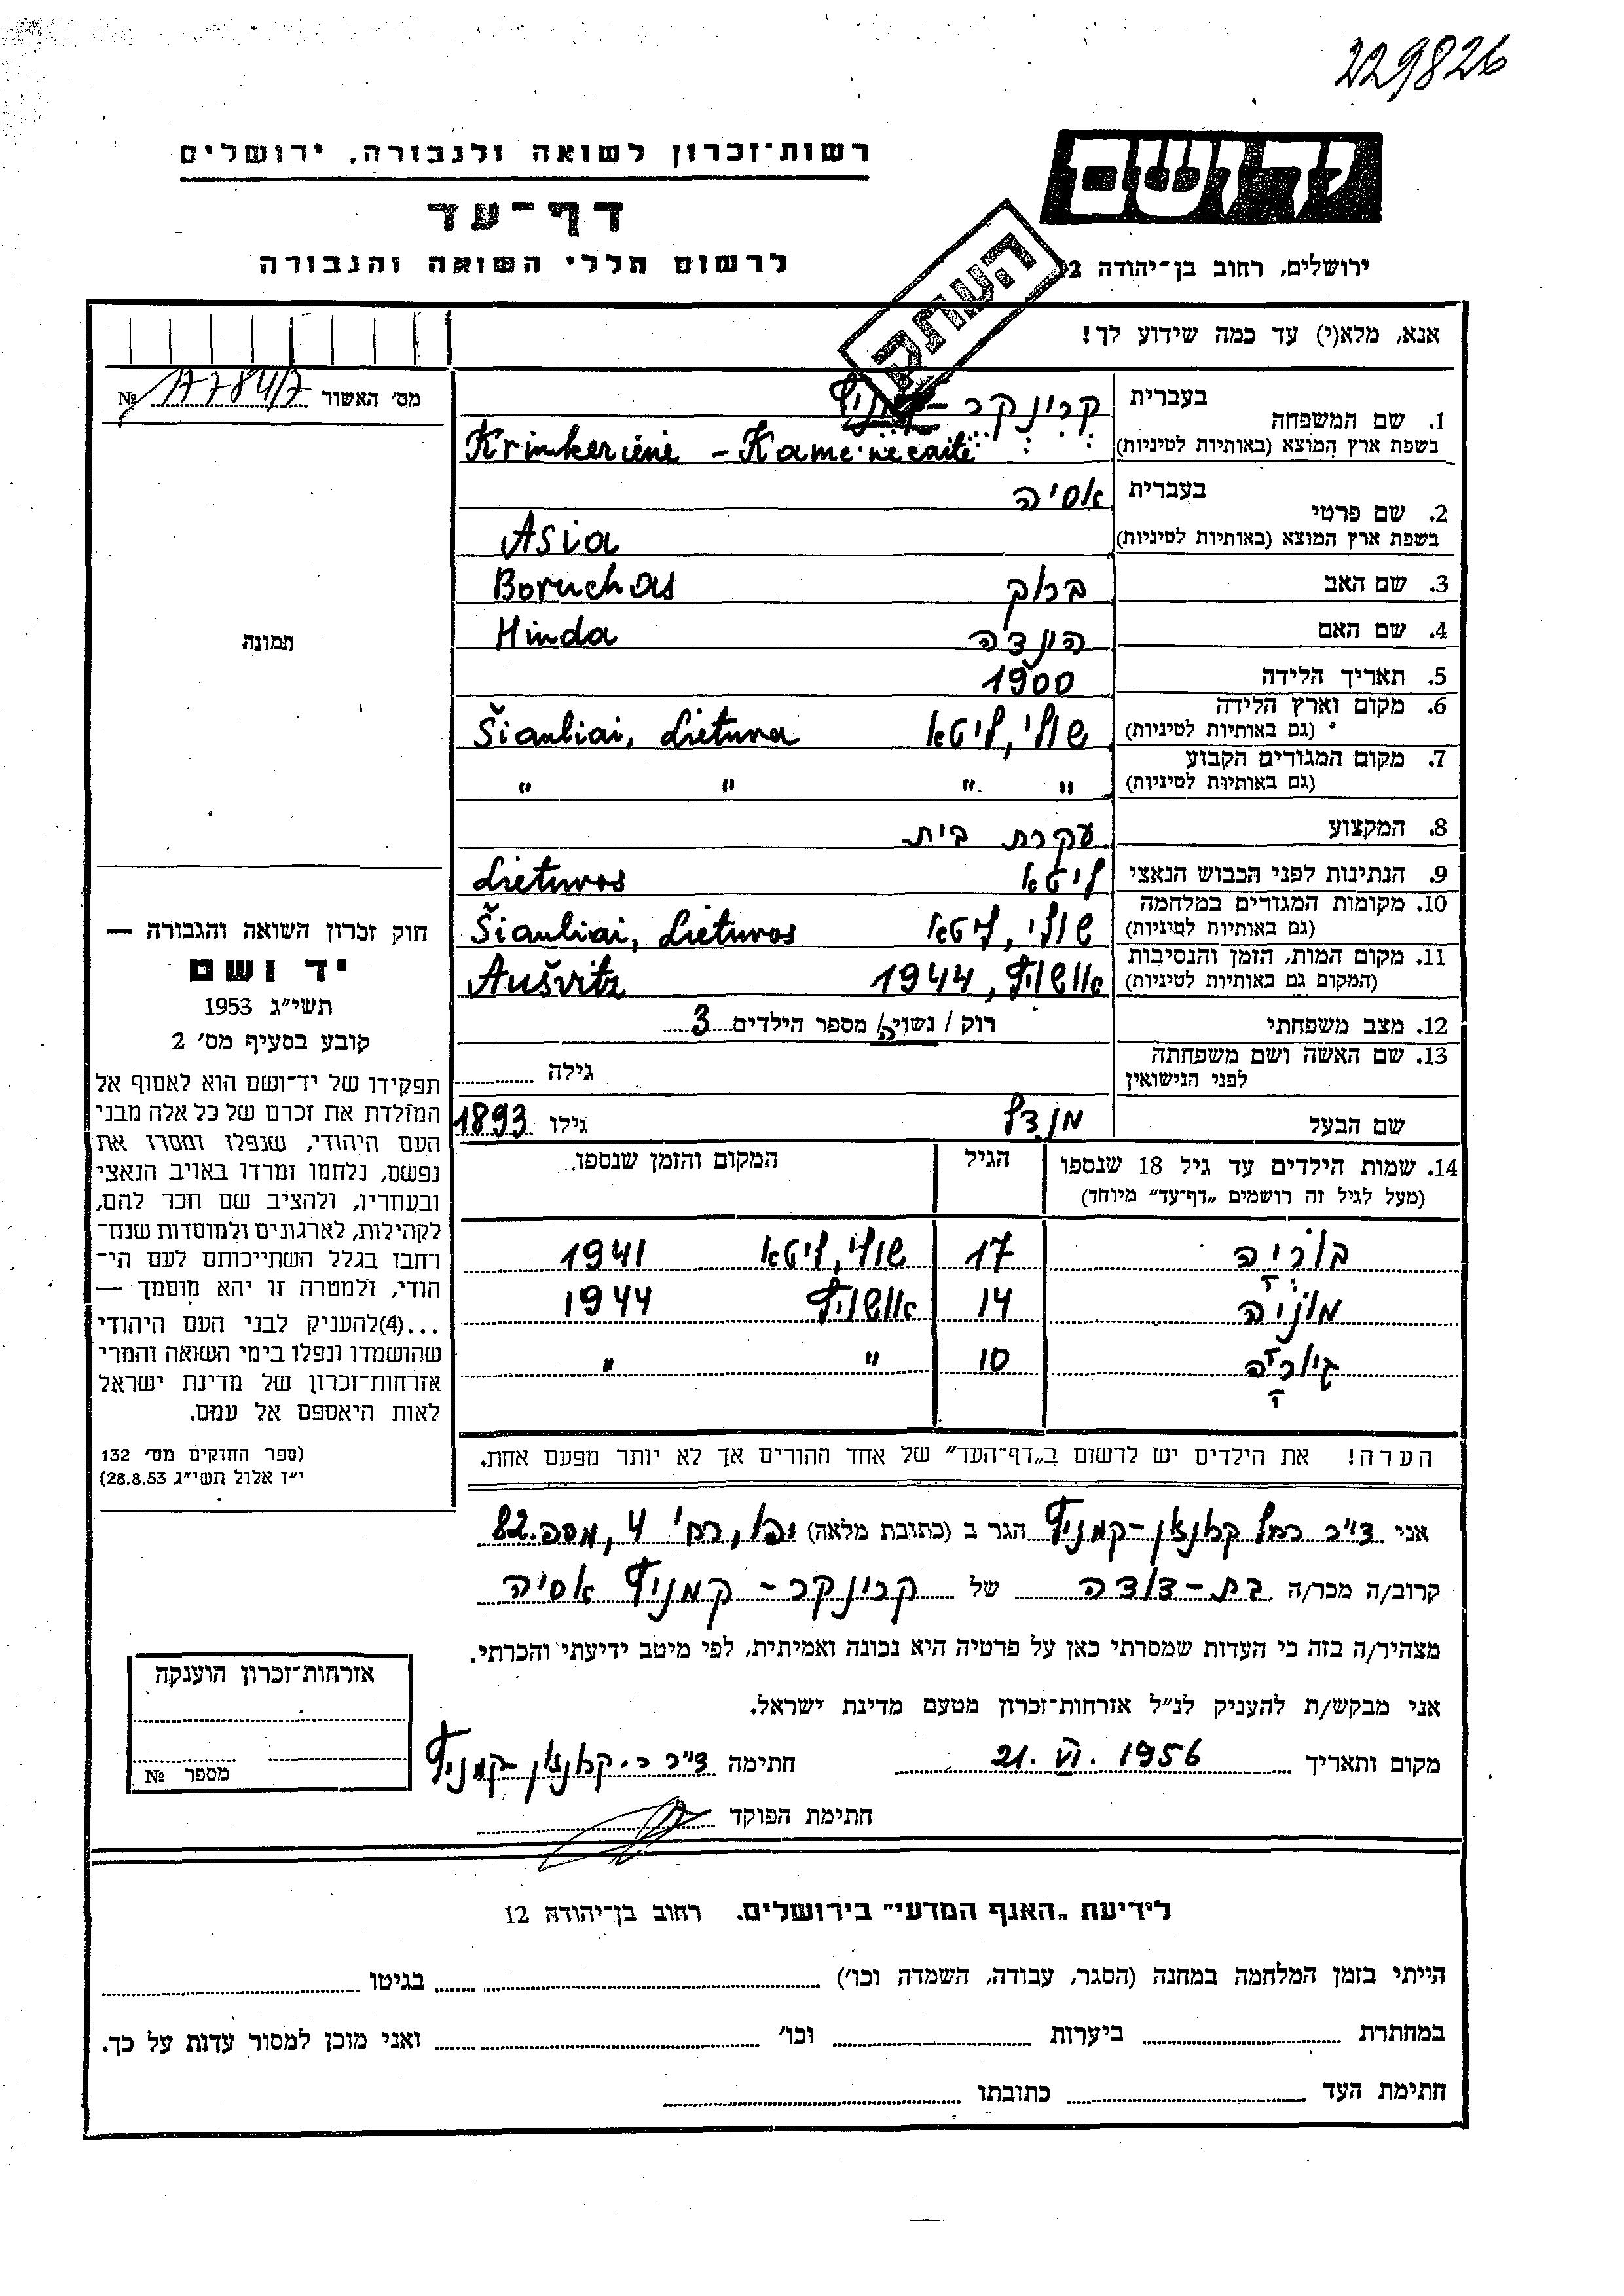 229826
יד ושם
רשות־זכרון לשואה ולגבורה, ירושלים
דף־עד
לרשום חללי השואה והגבורה
ירושלים, רחוב בן־יהודה 12
הועתק
אנא, מלא(י) עד כמה שידוע לך!
מס׳ האשור № 17784/7
1. שם המשפחה בעברית קרינקר - קמניץ
בשפת ארץ המוצא (באותיות לטיניות) Krinkeriene - Kamenecaite
2. שם פרטי בעברית אסיה
בשפת ארץ המוצא (באותיות לטיניות) Asia
3. שם האב ברוך Boruchas
4. שם האם הינדה Hinda
תמונה
5. תאריך הלידה 1900
6. מקום וארץ הלידה (גם באותיות לטיניות) שולי, ליטא Šiauliai, Lietuva
7. מקום המגורים הקבוע (גם באותיות לטיניות) " " " "
8. המקצוע עקרת בית
9. הנתינות לפני הכבוש הנאצי ליטא Lietuvos
10. מקומות המגורים במלחמה (גם באותיות לטיניות) שולי, ליטא Šiauliai, Lietuvos
11. מקום המות, הזמן והנסיבות (המקום גם באותיות לטיניות) אושויץ, 1944 Aušvitz
12. מצב משפחתי רוק / נשוי/ה מספר הילדים 3
13. שם האשה ושם משפחתה לפני הנישואין גילה
שם הבעל מנדל גילו 1893
14. שמות הילדים עד גיל 18 שנספו הגיל המקום והזמן שנספו
(מעל לגיל זה רושמים „דף־עד” מיוחד)
בוריה 17 שולי, ליטא 1941
מוניה 14 אושויץ 1944
10 " "
הערה! את הילדים יש לרשום ב„דף־העד” של אחד ההורים אך לא יותר מפעם אחת.
חוק זכרון השואה והגבורה —
יד ושם
תשי״ג 1953
קובע בסעיף מס׳ 2
תפקידו של יד־ושם הוא לאסוף אל
המולדת את זכרם של כל אלה מבני
העם היהודי, שנפלו ומסרו את
נפשם, נלחמו ומרדו באויב הנאצי
ובעוזריו, ולהציב שם וזכר להם,
לקהילות, לארגונים ולמוסדות שנח־
רחבו בגלל השתייכותם לעם הי־
הודי, ולמטרה זו יהא מוסמך —
...(4)להעניק לבני העם היהודי
שהושמדו ונפלו בימי השואה והמרי
אזרחות־זכרון של מדינת ישראל
לאות היאספם אל עמם.
(ספר החוקים מס׳ 132
י״ז אלול תשי״ג 28.8.53)
אני ד״ר רחל קמניץ הגר ב (כתובת מלאה) יפו, רח׳ 4, מספ. 82
קרוב/ה מכר/ה בת-דודה של קרינקר - קמניץ אסיה
מצהיר/ה בזה כי העדות שמסרתי כאן על פרטיה היא נכונה ואמיתית, לפי מיטב ידיעתי והכרתי.
אני מבקש/ת להעניק לנ״ל אזרחות־זכרון מטעם מדינת ישראל.
מקום ותאריך 21. VI. 1956 חתימה ד״ר ר. קמניץ
חתימת הפוקד
אזרחות־זכרון הוענקה
מספר №
לידיעת „האגף המדעי” בירושלים. רחוב בן־יהודה 12
הייתי בזמן המלחמה במחנה (הסגר, עבודה, השמדה וכו׳) בגיטו
במחתרת ביערות וכו׳ ואני מוכן למסור עדות על כך.
חתימת העד כתובתו